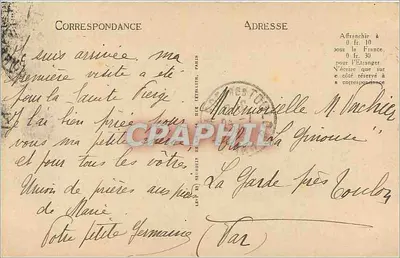 CORRESPONDANCE
ADRESSE
Affranchie à
0 fr. 10
pour la France
0 fr. 30
pour l'Étranger
N'écrire que sur
le côté réservé à
la correspondance
Je suis arrivée ma
première visite a été
pour la Sainte Vierge
J'ai bien prié pour
vous ma petite
et pour tous les vôtres
Union de prières aux pieds
de Marie
Votre petite Germaine
Mademoiselle M.
"La
La Garde près Toulon
(Var)
CPAPHIL